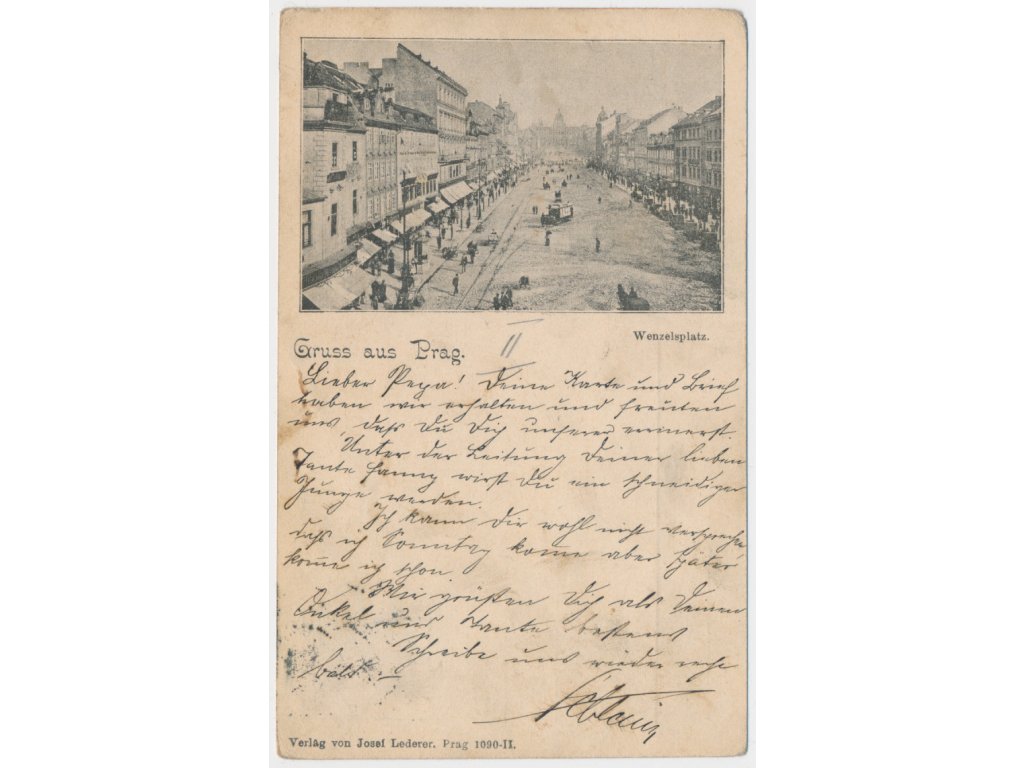 Wenzelsplatz.
Gruss aus Prag.
II
Lieber Pepa! Deine Karte und Brief
haben wir erhalten und freuten
uns, daß Du Dich unserer erinnerst.
Unter der Leitung Deiner lieben
Tante Fanny wirst Du ein schneidiger
Junge werden.
Ich kann Dir wohl nicht versprechen
daß ich Sonntag komme aber später
komme ich schon
Wir grüßen Dich als Deinen
Onkel und Tante bestens
Schreibe uns wieder recht
bald.
Verlag von Josef Lederer. Prag 1090-II.